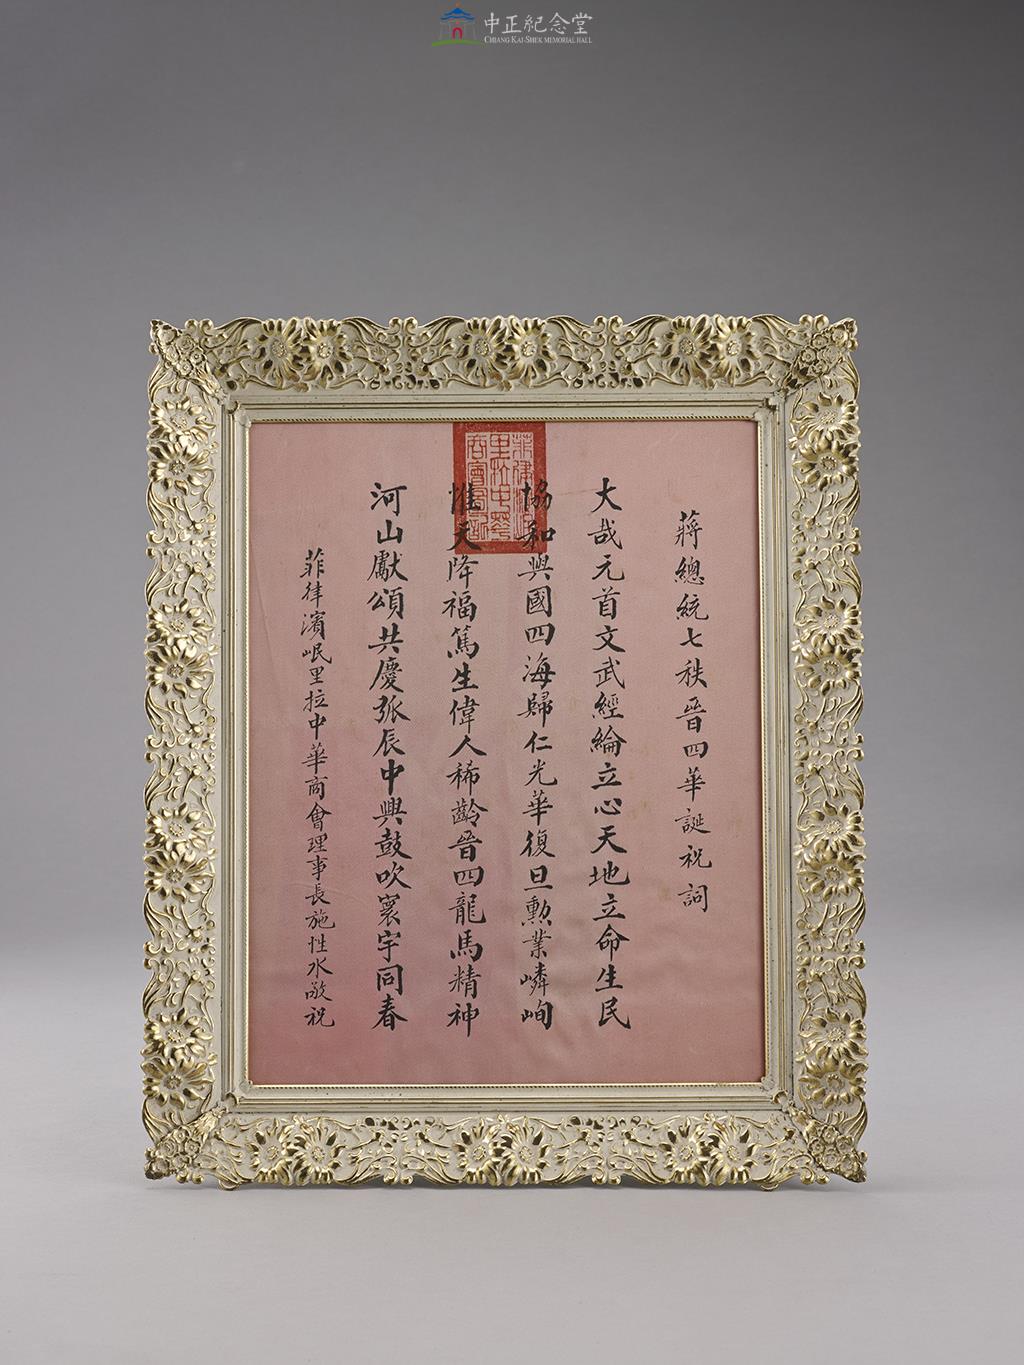 中正紀念堂
CHIANG KAI-SHEK MEMORIAL HALL
蔣總統七秩晉四華誕祝詞
大哉元首文武經綸立心天地立命生民
協和興國四海歸仁光華復旦勳業嶙峋
惟天降福篤生偉人稀齡晉四龍馬精神
河山獻頌共慶弧辰中興鼓吹寰宇同春
菲律濱岷里拉中華商會理事長施性水敬祝